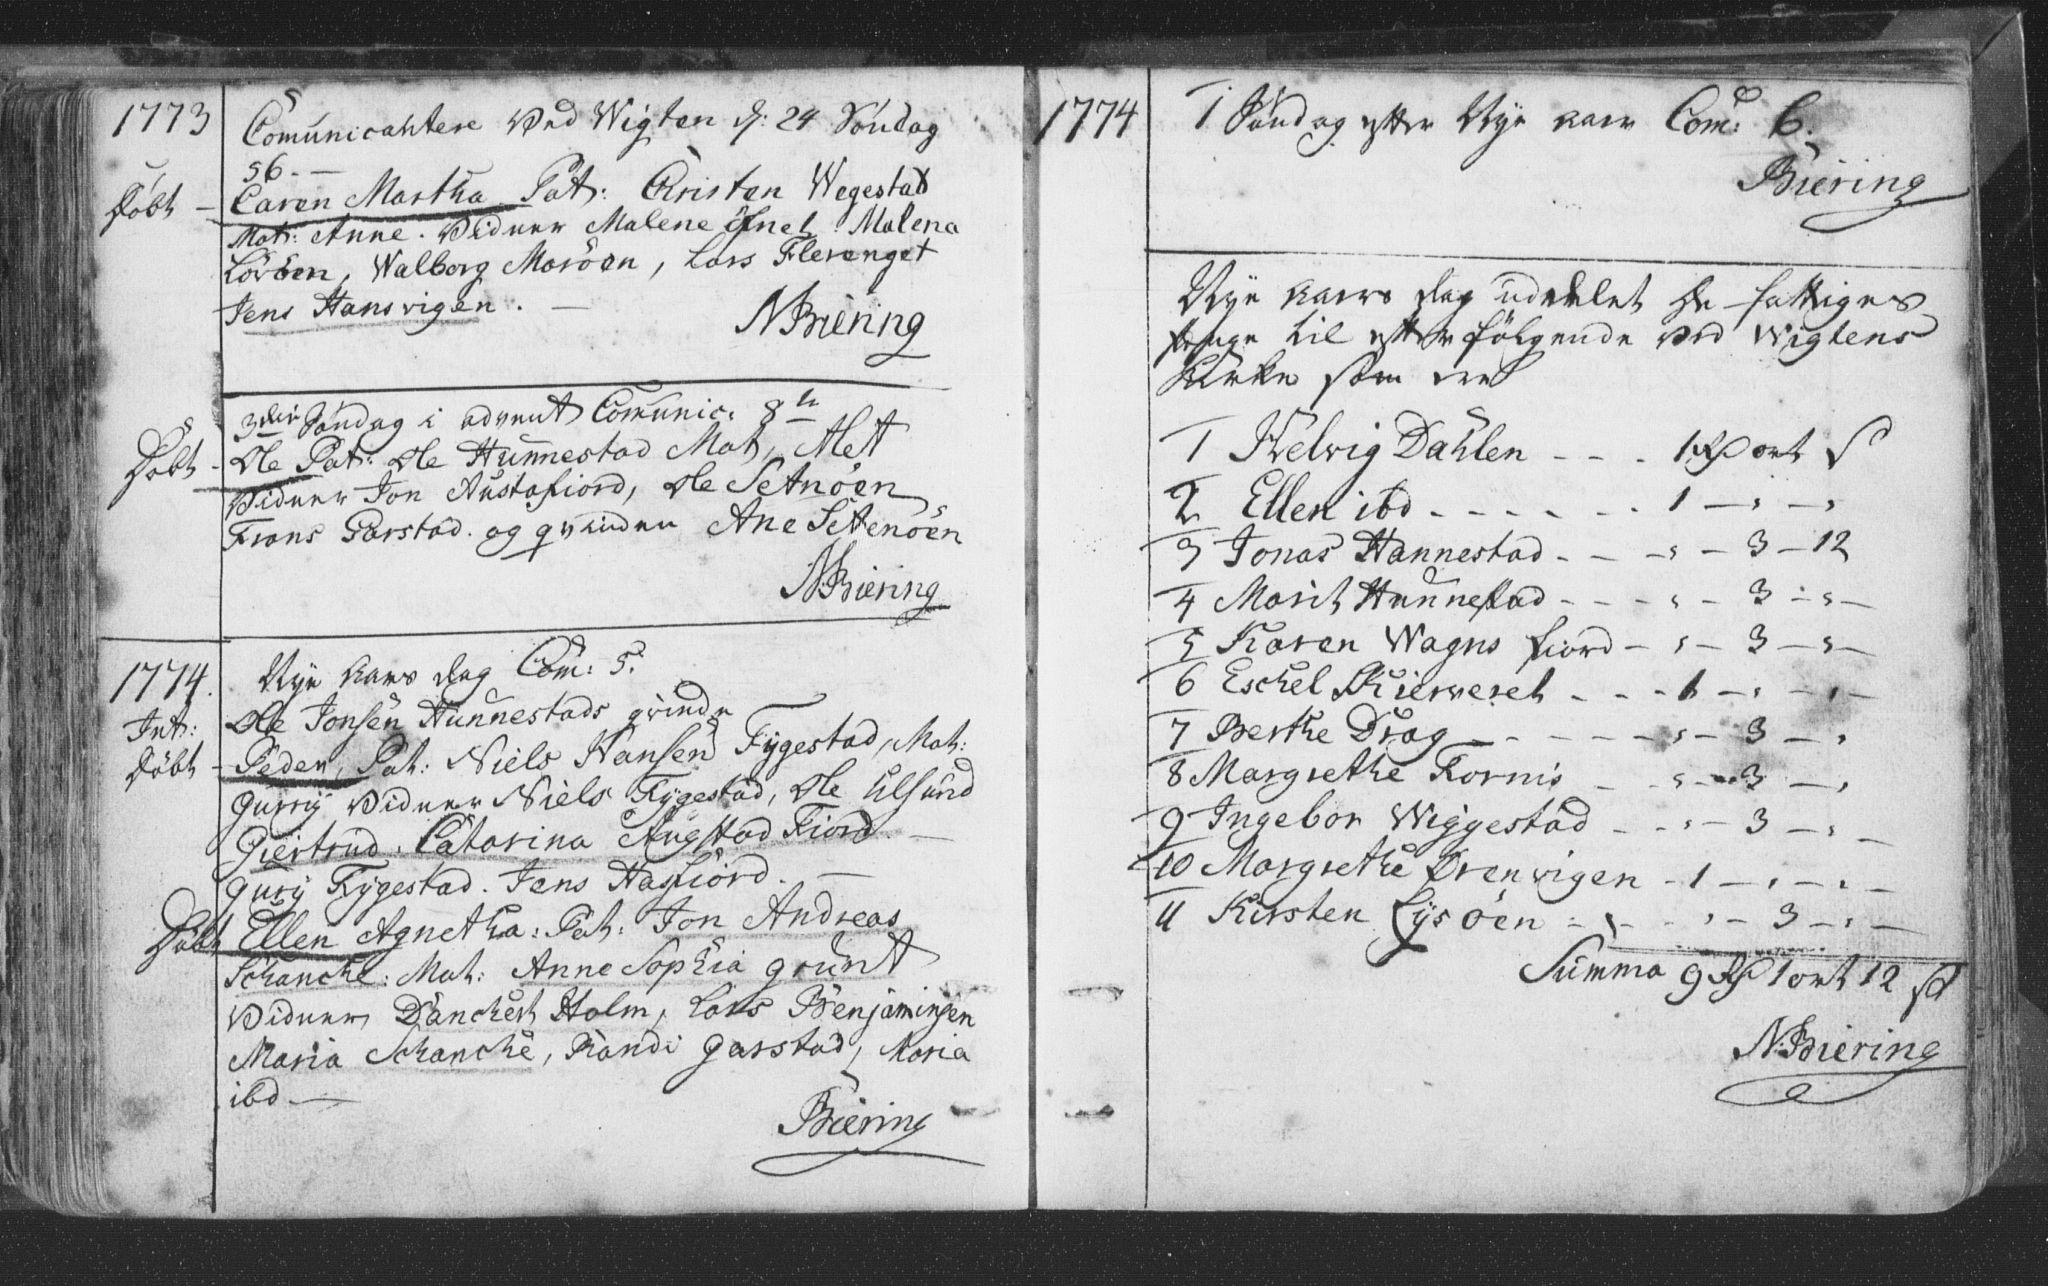 1773
Comunicantere ved Wigten d: 24 Söndag
56. —
Döbt — Caren Martha Pat: Cristen Wegestad
Mat: Anne. Vidner Malene ibnet Malena
Lövöen, Walborg Maröen, Lars Flerenget
Jens Hansvigen. —
NBiering
3die Söndag i advent Comunic: 8te
Döbt - Ole Pat: Ole Hunnestad Mat, Alet
Vidner Jon Austafiord, Ole Setnöen
Frans Garstad. og qvinden Ane Settenöen
N.Biering
1774. Nye Aars dag Com: 5.
Int: Ole Jonsen Hunnestads qvinde
Döbt — Peder, Pat: Niels Hansen Fygestad, Mat:
Gurrÿ Vidner Niels Fÿgestad, Ole Ulsund
Giertrud. Catarina Augstad Fiord —
Gurÿ Fÿgestad. Jens Hasfiord. —
Döbt Ellen Agnetha: Pat: Jon Andreas
Schanche: Mat: Anne Sophia Grünt
Vidner, Danchert Holm, Lars Benjaminsen
Maria Schanche, Randi Garstad, Maria
ibd —
Biering
1774 1 Söndag efter Nye Aar Com: 6.
Biering
Nye Aars dag uddelet de fattiges
penge til efterfölgende ved Wigtens
Kirke som er
1 Helvig Dahlen - - - 1 Rd ort s
2 Ellen ibd - - - - - - 1 — " — "
3 Jonas Hannestad - - - " — 3 — 12
4 Marit Hunnestad - - - " — 3 — " —
5 Karen Wagns fiord — " — 3 — " —
6 Eschel Kierveret - - - 1 — " — " —
7 Berthe Drag - - - - - - " — 3 — "
8 Margrethe Fornis - - " — 3 — "
9 Ingebor Wiggestad - - " — 3 — " —
10 Margrethe Örenvigen - 1 — " — " —
11 Kirsten Lÿsöen - - - " — 3 — " —
Summa 9 Rd 1 ort 12 s
N:Biering